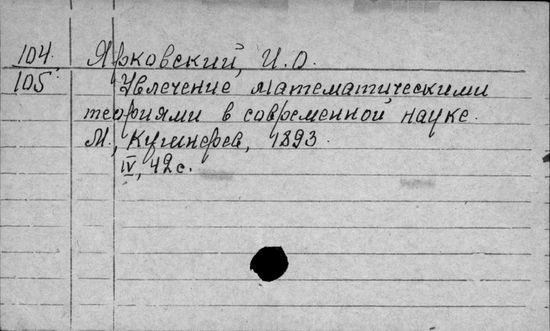 104. Ярковский, И.О.
105. Увлечение математическими
теориями в современной науке.
М., Кушнерев, 1893.
IV, 42 с.